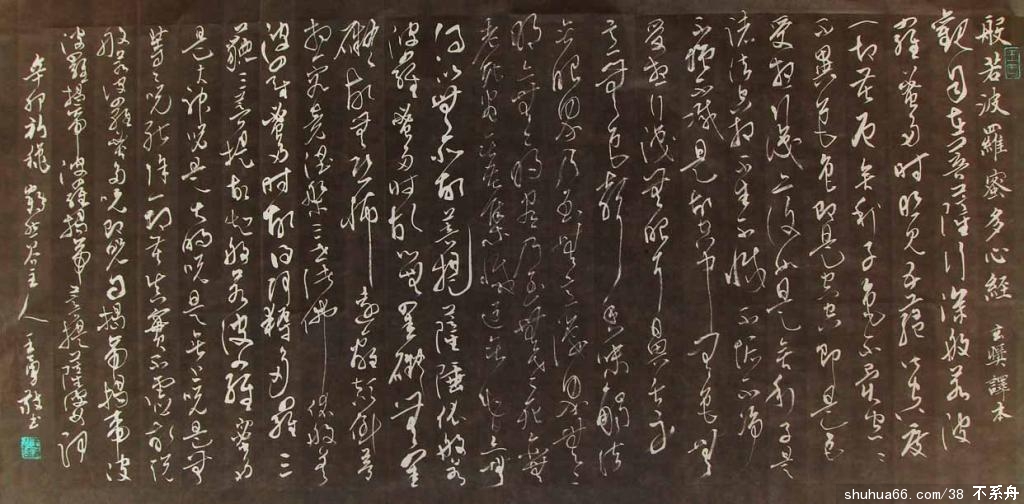 般若波羅蜜多心經 玄奘譯本
觀自在菩薩行深般若波
羅蜜多時照見五蘊皆空度
一切苦厄舍利子色不異空々
不異色色即是空空即是色
受想行識亦復如是舍利子是
諸法空相不生不滅不垢不淨
不增不減是故空中無色無
受想行識無眼耳鼻舌身
意無色聲香味觸法
無眼界乃至無意識界無々
明亦無々明盡乃至無老死亦無
老死盡無苦集滅道無智亦無
得以無所得故菩提薩埵依般若
波羅蜜多時故心無罣礙無罣
礙故無有恐怖遠離顛倒夢
想究竟涅槃三世諸佛依般若
波羅蜜多時故得阿耨多羅三
藐三菩提故知般若波羅蜜多
是大神咒是大明咒是無上咒是無
等々咒能除一切苦真實不虛故說
般若波羅蜜多咒即說咒曰揭帝揭帝波
波羅揭帝波羅揭帝菩提薩婆訶
辛卯初秋 主人 敬書
shuhua66.com/38 不系舟